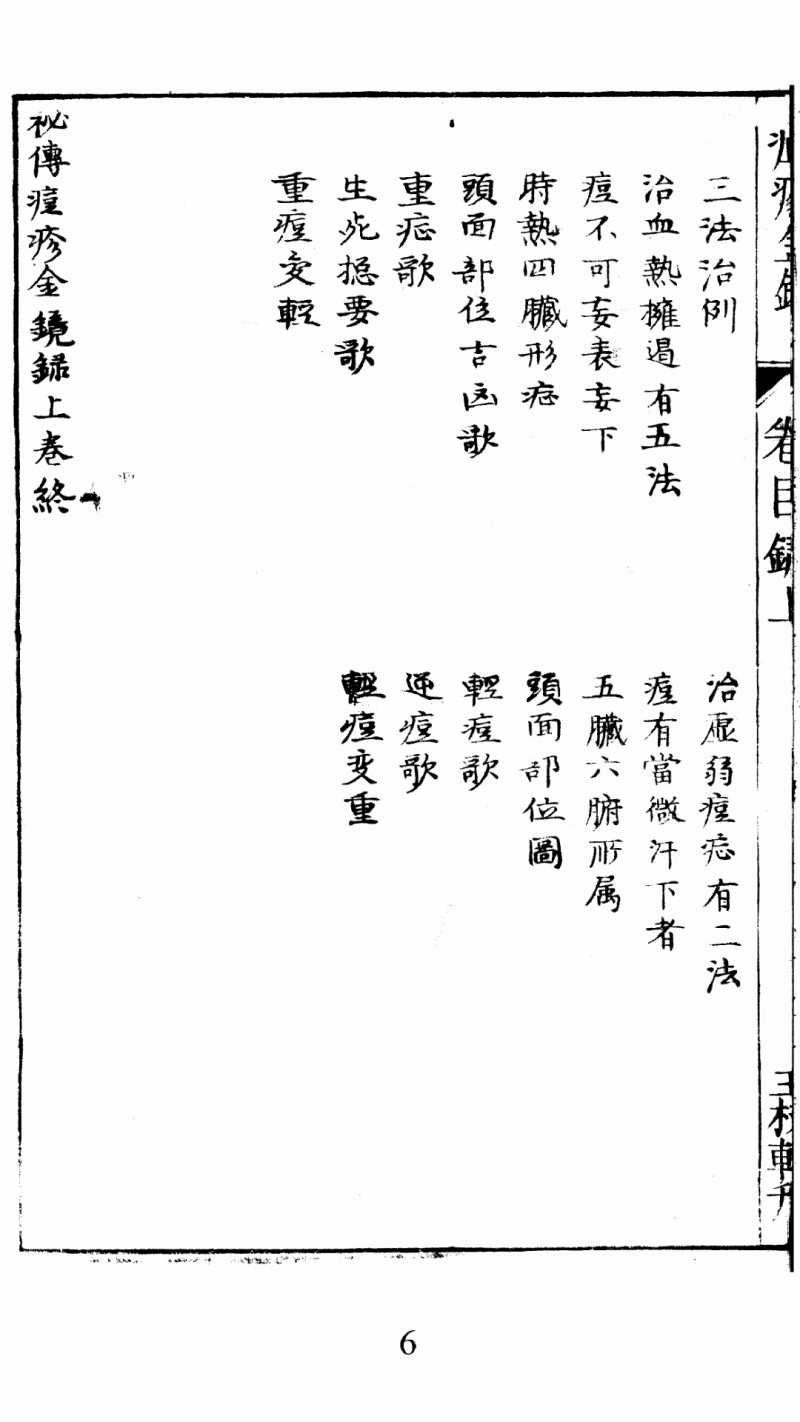 三法治例
治虛弱痘症有二法
治血熱擁遏有五法
痘有當微汗下者
痘不可妄表妄下
五臟六腑所属
時熱四臟形症
頭面部位圖
頭面部位吉凶歌
輕痘歌
重症歌
逆痘歌
生死捴要歌
輕痘变重
重痘变輕
祕傳痘疹金鏡錄上卷終
卷目録上
6